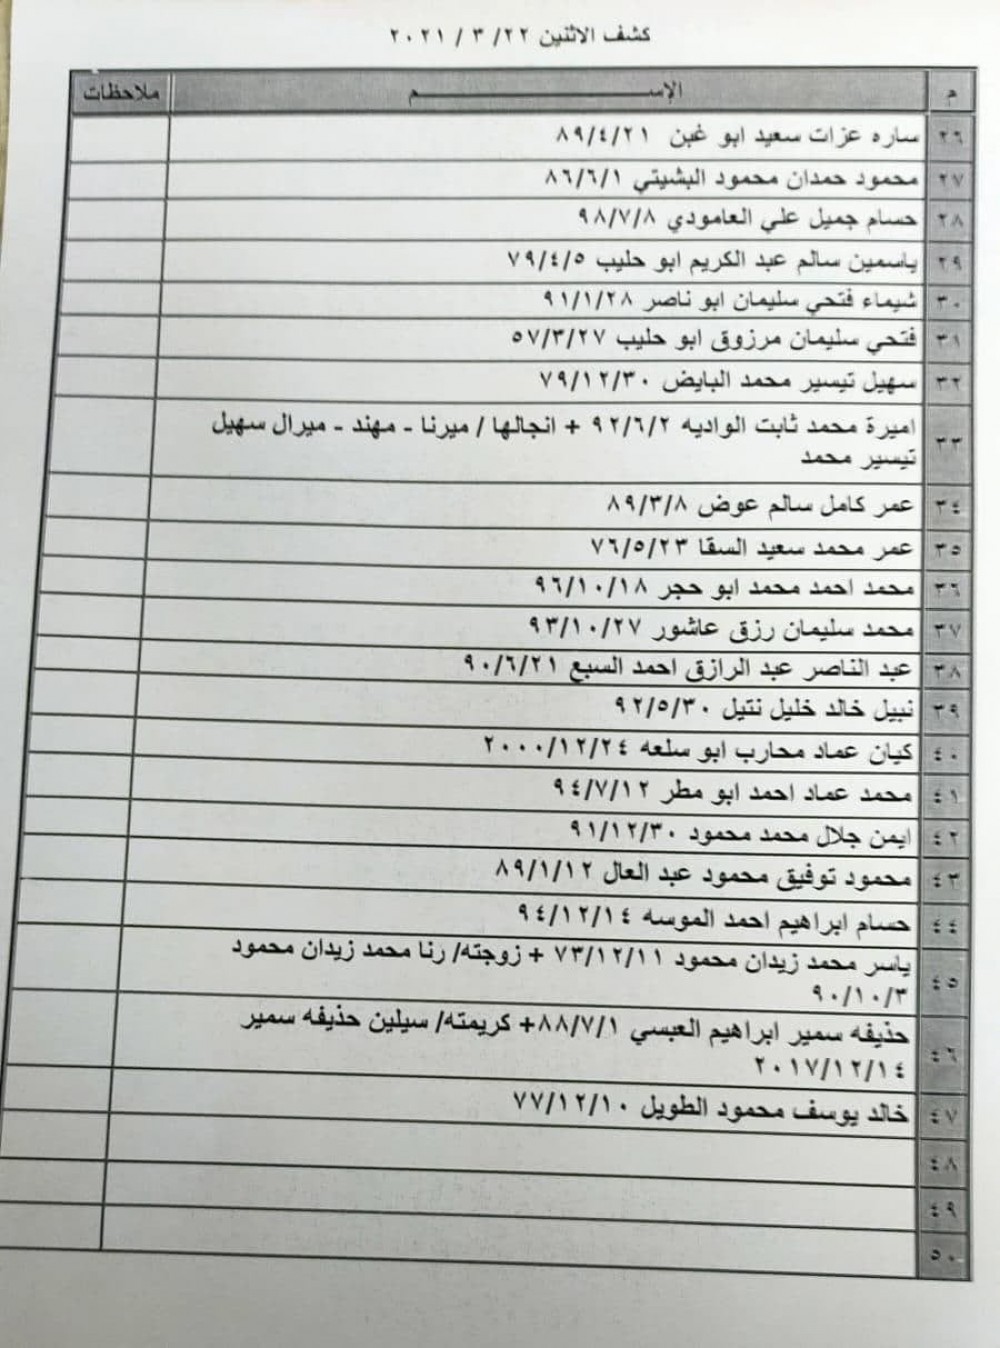 كشف الاثنين ٢٢/ ٣ / ٢٠٢١
م الإســـــــــم ملاحظات
٢٦ ساره عزات سعيد ابو غبن ٨٩/٤/٢١
٢٧ محمود حمدان محمود البشيتي ٨٦/٦/١
٢٨ حسام جميل علي العامودي ٩٨/٧/٨
٢٩ ياسمين سالم عبد الكريم ابو حليب ٧٩/٤/٥
٣٠ شيماء فتحي سليمان ابو ناصر ٩١/١/٢٨
٣١ فتحي سليمان مرزوق ابو حليب ٥٧/٣/٢٧
٣٢ سهيل تيسير محمد البايض ٧٩/١٢/٣٠
٣٣ اميرة محمد ثابت الواديه ٩٢/٦/٢ + انجالها / ميرنا - مهند - ميرال سهيل
تيسير محمد
٣٤ عمر كامل سالم عوض ٨٩/٣/٨
٣٥ عمر محمد سعيد السقا ٧٦/٥/٢٣
٣٦ محمد احمد محمد ابو حجر ٩٦/١٠/١٨
٣٧ محمد سليمان رزق عاشور ٩٣/١٠/٢٧
٣٨ عبد الناصر عبد الرازق احمد السبع ٩٠/٦/٢١
٣٩ نبيل خالد خليل نتيل ٩٢/٥/٣٠
٤٠ كيان عماد محارب ابو سلعه ٢٠٠٠/١٢/٢٤
٤١ محمد عماد احمد ابو مطر ٩٤/٧/١٢
٤٢ ايمن جلال محمد محمود ٩١/١٢/٣٠
٤٣ محمود توفيق محمود عبد العال ٨٩/١/١٢
٤٤ حسام ابراهيم احمد الموسه ٩٤/١٢/١٤
٤٥ ياسر محمد زيدان محمود ٧٣/١٢/١١ + زوجته/ رنا محمد زيدان محمود
٩٠/١٠/٣
٤٦ حذيفه سمير ابراهيم العبسي ٨٨/٧/١+ كريمته/ سيلين حذيفه سمير
٢٠١٧/١٢/١٤
٤٧ خالد يوسف محمود الطويل ٧٧/١٢/١٠
٤٨
٤٩
٥٠